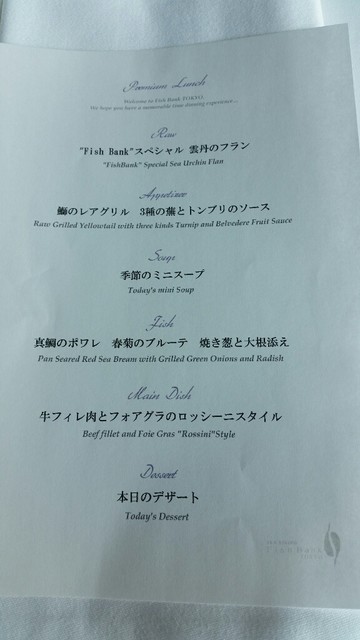 Premium Lunch
Welcome to Fish Bank TOKYO
We hope you have a memorable time dining experience...
Raw
"Fish Bank"スペシャル 雲丹のフラン
"FishBank" Special Sea Urchin Flan
Appetizer
鰤のレアグリル 3種の蕪とトンブリのソース
Raw Grilled Yellowtail with three kinds Turnip and Belvedere Fruit Sauce
Soup
季節のミニスープ
Today's mini Soup
Fish
真鯛のポワレ 春菊のブルーテ 焼き葱と大根添え
Pan Seared Red Sea Bream with Grilled Green Onions and Radish
Main Dish
牛フィレ肉とフォアグラのロッシーニスタイル
Beef fillet and Foie Gras "Rossini"Style
Dessert
本日のデザート
Today's Dessert
Fish Bank